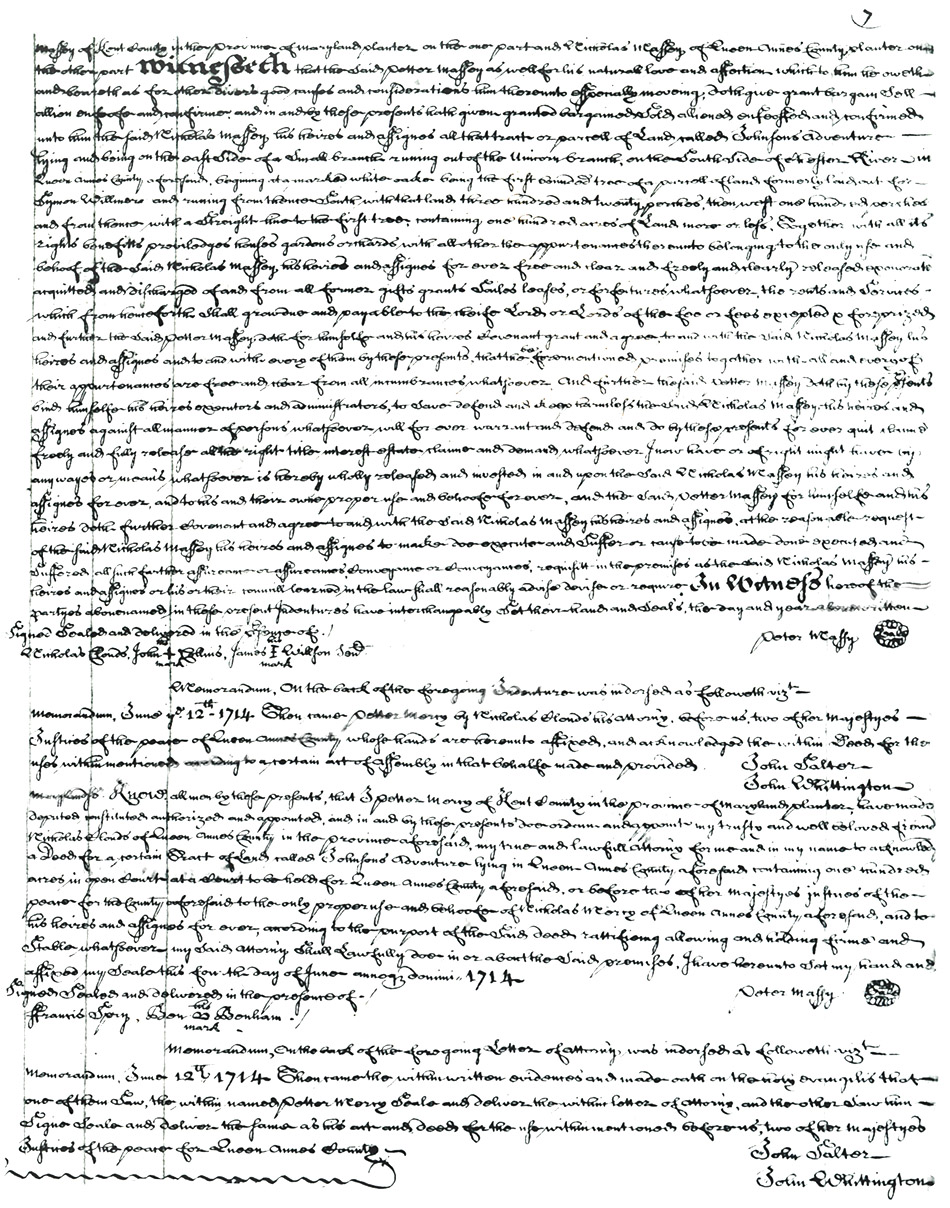 7
Massey of Kent County in the Province of Maryland planter on the one part and Nicholas Massey of Queen Annes County planter on
the other part Witnesseth that the Said Petter Massey as well for his naturall love and affection which to him he oweth
and beareth as for other divers good causes and considerations him thereunto espesially moveing, doth give grant bargain Sell
allien enfeofe and confirme, and in and by these presents hath given granted bargained Sold aliened enfeoffed and confirmed
unto him the said Nicholas Massey his heires and assignes all that tract or parcell of Land called Johnsons Adventure
lying and being on the east Side of a Small branch runing out of the Unicorn branch, on the South Side of Chester River in
Queen Annes County aforesaid, begining at a marked white oake being the first bounded tree of a parcell of land formerly laid out for
Symon Willmore and runing from thence South with that land three hundred and twenty perches, then west one hundred perches
and from thence with a Streight line to the first tree, containing one hundred acres of Land more or less, Together with all its
rights benefitts priviledges houses gardens orchards with all other the appurtenances thereunto belonging to the only use and
behoof of the Said Nicholas Massey, his heires and assignes for ever free and clear and freely and clearly released exonerate
acquitted and discharged of and from all former gifts grants Sailes leases, or forfeitures whatsoever, the rents and Services
which from henceforth Shall grow due and payable to the cheife Lord or Lords of the fee or fees excepted
and further the Said Petter Massey doth for himselfe and his heires Covenant grant and agree to and with the Said Nicholas Massey his
heires and assignes and to and with every of them by these presents, that the forementioned premises together with all and every of
their appurtenances are free and clear from all incumbrances whatsoever. And further the said Petter Massey doth by these presents
bind himselfe his heires executors and administrators, to Save defend and keep harmless the Said Nicholas Massey his heires and
assignes against all manner of persons whatsoever will for ever warrint and defend and do by these presents for ever quit claime
freely and fully release all the right title interest estate claime and demand whatsoever I now have or of right might have by
any wayes or means whatsoever is hereby wholly released and invested in and upon the Said Nicholas Massey his heires and
assignes for ever, and to his and their owne proper use and behoofe for ever, and the Said Petter Massey for himselfe and his
heires doth further Covenant and agree to and with the Said Nicholas Massey his heires and assignes, at the reasonable request
of the said Nicholas Massey his heires and assignes to make doe execute and Suffer or cause to be made done executed and
Suffered all such further assurance or assurances Conveyance or Conveyances, requisitt in the premises as the Said Nicholas Massey his
heires and assignes or his or their councill learned in the law shall reasonably advise devise or require In Witness hereof the
partyes abovenamed in these present Indentures have interchangably Set their hand and Seals, the day and year above written
Signed Sealed and delivered in the presence of
Peter Massy
Nicholas Clouds, John Ellins, James Willson Send
his mark his mark
Memorandum, On the back of the foregoing Indenture was indorsed as followeth vizt
Memorandum, June ye 12th 1714 Then came Petter Mercy by Nicholas Clouds his Attorny, before us, two of her Majestyes
Justices of the peace of Queen Annes County whose hands are hereunto affixed, and acknowledged the within Deed for the
uses within mentioned according to a certain act of Assembly in that behalfe made and provided
John Salter
John Whittington
Maryland ss. Know all men by these presents, that I Petter Mercy of Kent County in the province of Maryland planter, have made
deputed constituted authorized and appointed, and in and by these presents doe ordain and appoint my trusty and well beloved friend
Nicholas Clouds of Queen Annes County in the province aforesaid, my true and lawfull Attorny for me and in my name to acknowledge
a Deed for a certain Tract of Land called Johnsons Adventure lying in Queen Annes County aforesaid containing one hundred
acres in open Court at a Court to be held for Queen Annes County aforesaid, or before two of her majestyes justices of the
peace for the County aforesaid to the only proper use and behoofe of Nicholas Mercy of Queen Annes County aforesaid, and to
his heires and assignes for ever, according to the purport of the Said deed rattifieing allowing and holding firme and
Stable whatsoever my Said Attorny Shall Lawfully doe in or about the Said premises, I have hereunto Set my hand and
affixed my Seale this the day of June annoq domini 1714
Signed Sealed and delivered in the presence of
Peter Massy
ffrancis Spry, Ben Benham
his mark
Memorandum, On the back of the foregoing Letter of attorny, was indorsed as followeth vizt
Memorandum, June 12th 1714 Then came the within written evidences and made oath on the holy evangelis that
one of them Saw, the within named Petter Mercy Seale and deliver the within letter of Attorny, and the other Saw him
Signe Seale and deliver the same as his act and deed for the use within mentioned before us, two of her majestyes
Justices of the peace for Queen Annes County
John Salter
John Whittington